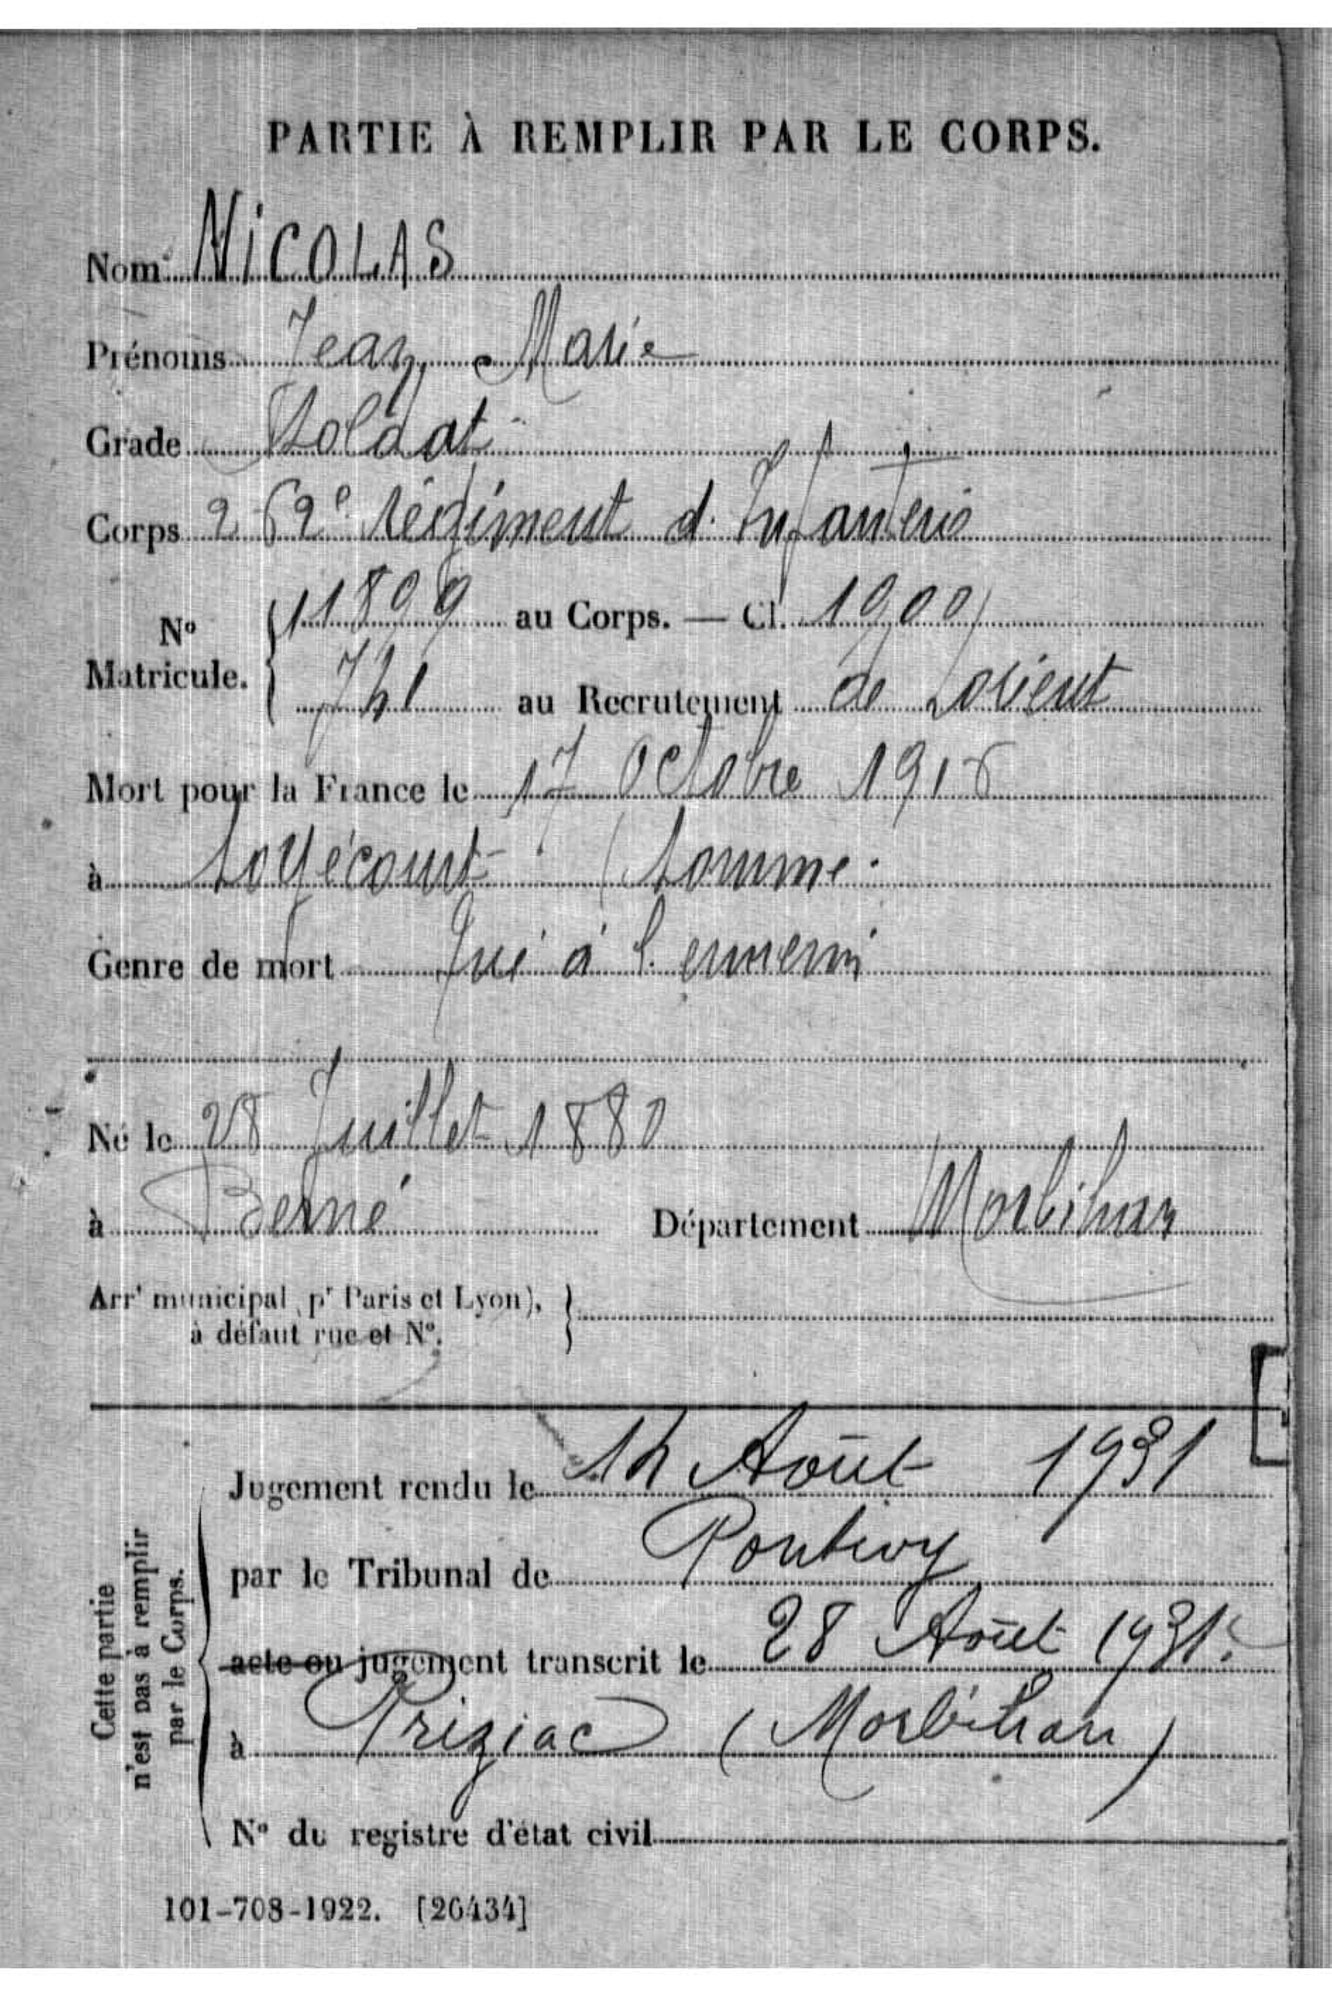 PARTIE À REMPLIR PAR LE CORPS.
Nom NICOLAS
Prénoms Jean Marie
Grade Soldat
Corps 262e régiment d. Infanterie
No Matricule. { 1899 au Corps. — Cl. 1900
741 au Recrutement de Lorient
Mort pour la France le 17 Octobre 1916
à Soyécourt (Somme.
Genre de mort Tué à l. ennemi
Né le 28 Juillet 1880
à Berné Département Morbihan
Arrt municipal pr Paris et Lyon), }
à défaut rue et No.
Cette partie
n'est pas à remplir
par le Corps.
Jugement rendu le 14 Août 1931
par le Tribunal de Pontivy
acte ou jugement transcrit le 28 Août 1931.
à Priziac (Morbihan)
No du registre d'état civil
101-708-1922. [26434]